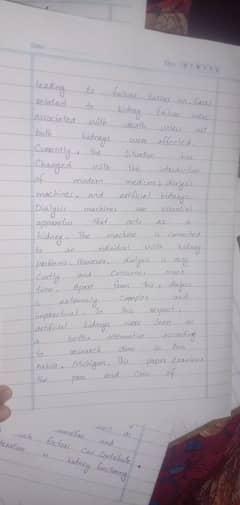 leading to failure. Earlier on, cases
related to kidney failure were
associated with death unless not
both kidneys were affected.
Currently, the situation has
changed with the introduction
of modern medicine, dialysis
machines, and artificial kidneys.
Dialysis machines are essential
apparatus that acts as a
kidney. The machine is connected
to an individual with kidney
problems. However, dialysis is very
costly and consumes more
time. Apart from this, dialysis
is extremely complex and
impractical. In this respect,
artificial kidneys were seen as
a better alternative according
to research done in Ann
Arbor, Michigan. This paper examines
the pros and cons of
and
such factors can contribute
kidney functioning